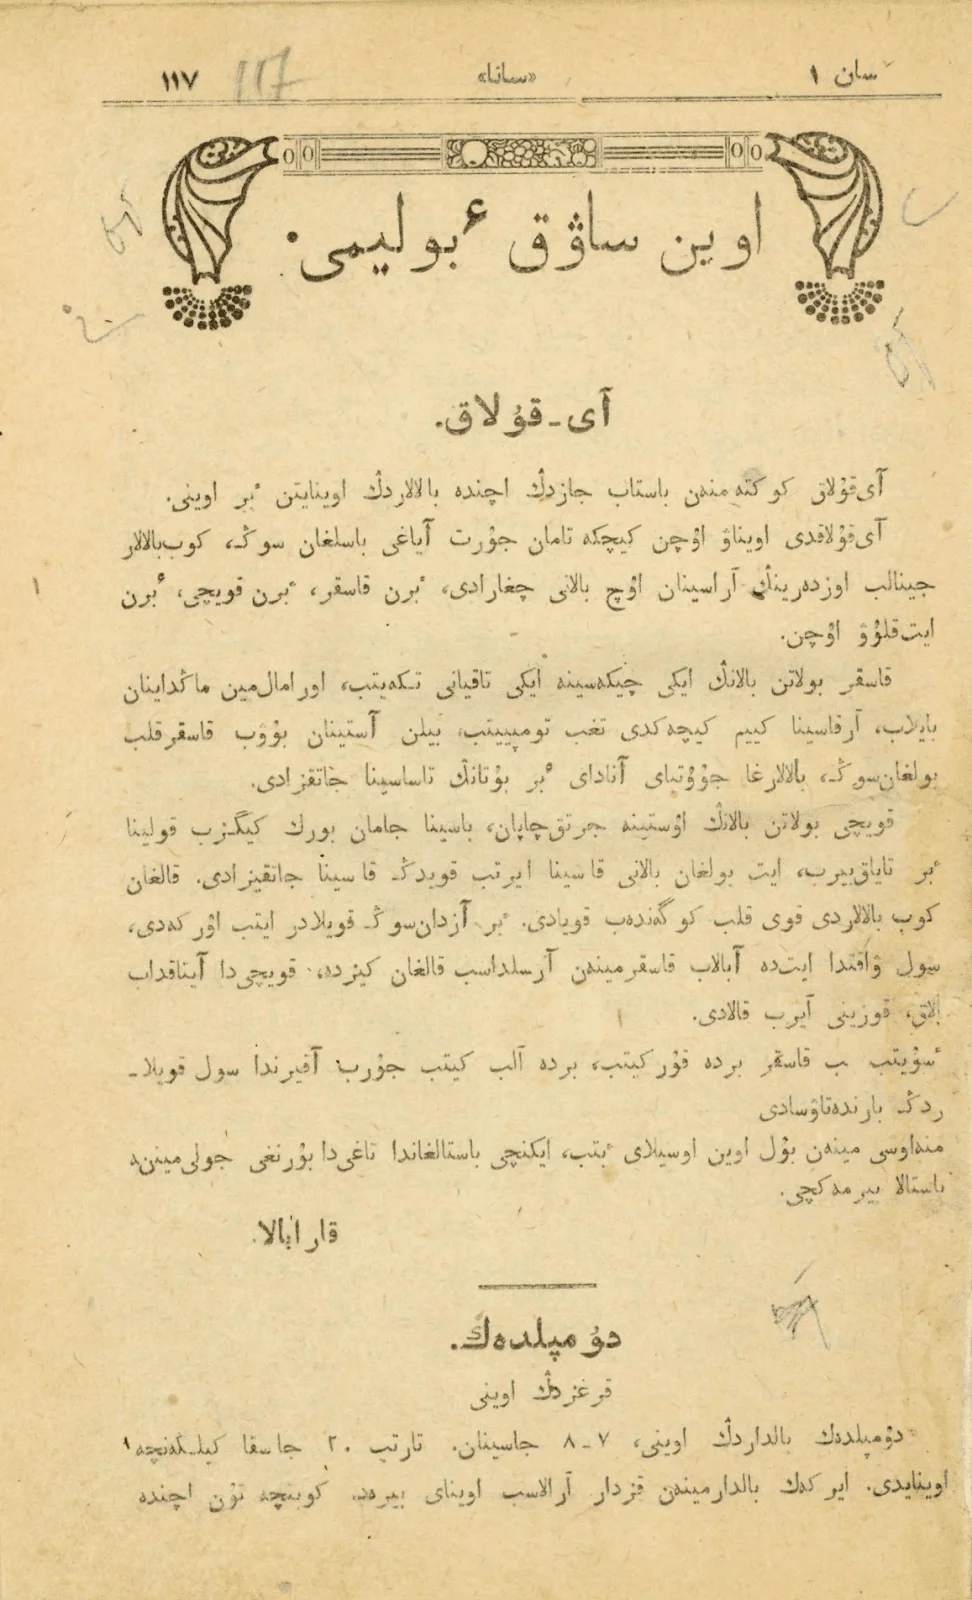 سان ١ «سانا» ١١٧
117
اوين ساۋق ٴبوليمى.
آى ـ قۇلاق.
آى‌قۇلاق كوكتەمنەن باستاب جازدڭ اچندە بالالاردڭ اوينايتن ٴبر اوينى.
آى‌قۇلاقدى اويناۋ اۇچن كيچكە تامان جۇرت آياغى باسلغان سوڭ، كوب‌بالالار
جينالب اوزدەرينڭ آراسينان اۇچ بالانى چغارادى، ٴبرن قاسقر، ٴبرن قويچى، ٴبرن
ايت‌قلۇۋ اۇچن.
قاسقر بولاتن بالانڭ ايكى چيكەسينە ايكى تاقيانى تكەيتب، اورامال‌مين ماڭداينان
بايلاب، آرقاسينا كييم كيچەكدى تغب تومپييتب، بيلن آستينان بۇۋب قاسقرقلب
بولغان‌سوڭ، بالالارغا جۇۋتباى آناداى ٴبر بۇتانڭ تاساسينا جاتقزادى.
قويچى بولاتن بالانڭ اۇستينە جرتق‌چاپان، باسينا جامان بورك كيگزب قولينا
ٴبر تاياق‌بيرب، ايت بولغان بالانى قاسينا ايرتب قويدڭ قاسينا جاتقيزادى. قالغان
كوب بالالاردى قوى قلب كوگەندەب قويادى. ٴبر آزدان‌سوڭ قويلادر ايتب اۇركەدى،
سول ۋاقتدا ايت‌دە آبالاب قاسقرمينەن آرسلداسب قالغان كيزدە، قويچى‌دا آيتاقداب
الاق، قوزينى آيرب قالادى.
ٴسۇيتب ب قاسقر بردە قۇركيتب، بردە آلب كيتب جۇرب آقيرندا سول قويلا ـ
ردڭ بارندەتاۋسادى
منەاوسى مينەن بۇل اوين اوسيلاى ٴبتب، ايكنچى باستالغاندا تاغى‌دا بۇرنغى جولى‌مينەن
باستالا بيرمەكچى.
قارابالا.
دۇمپلدەك.
قرغزدڭ اوينى
دۇمپلدەك بالداردڭ اوينى، ٧ ـ ٨ جاسينان. تارتب ٢٠ جاسقا كيلگەنچە
اوينايدى. ايركەك بالدارمينەن قزدار آرالاسب اويناى بيرەد. كوبنچە تۇن اچندە